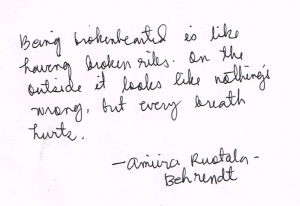 Being brokenhearted is like
having broken ribs. On the
outside it looks like nothing's
wrong, but every breath
hurts.
—Amiira Ruotola-
Behrendt